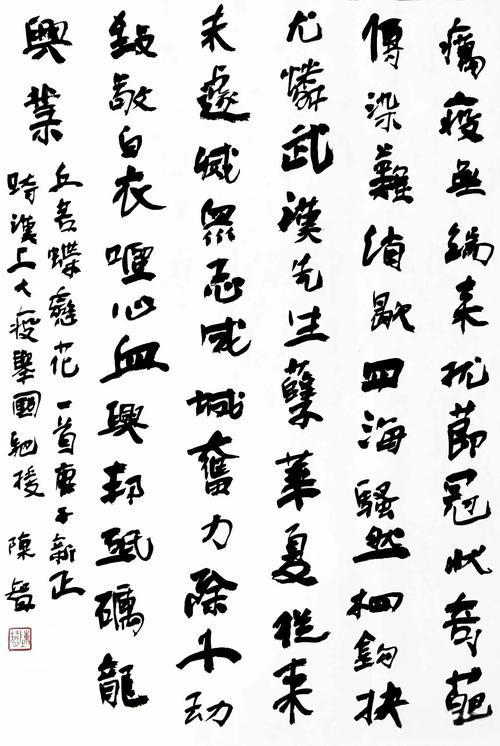 癘疫無端來擾節冠狀奇葩
傳染難歇四海騷然鉤抉
尤憐武漢先生孽華夏從來
未遽滅眾志成城奮力除小劫
致敬白衣嘔心血興邦砥礪龍
興業
蝶戀花一首庚子新正
時漢上大疫舉國馳援 陳